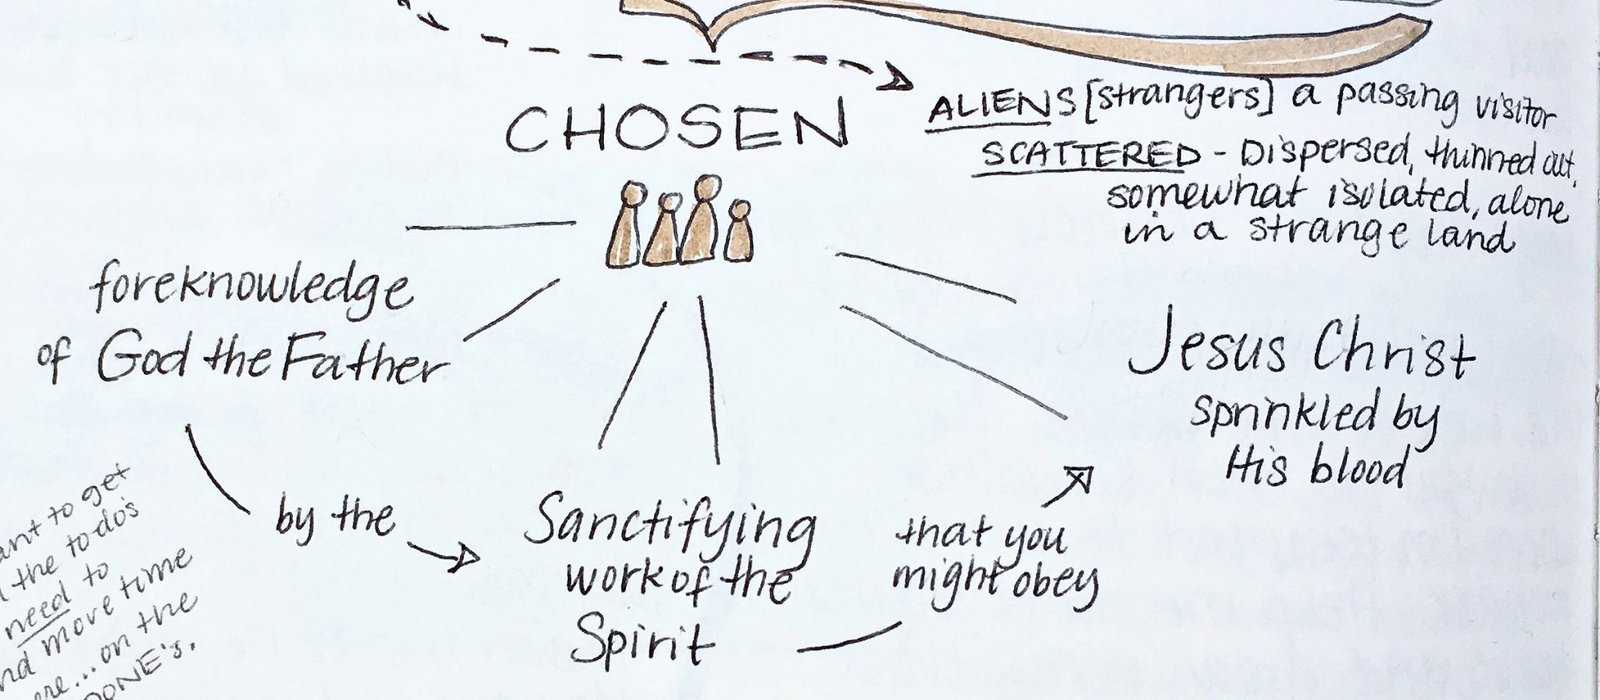 CHOSEN
ALIENS [strangers] a passing visitor
SCATTERED - Dispersed, thinned out,
somewhat isolated, alone
in a strange land
foreknowledge
of God the Father
by the
Sanctifying
work of the
Spirit
that you
might obey
Jesus Christ
sprinkled by
His blood
to get
the to do's
need to
more time
... on the
DONE's.